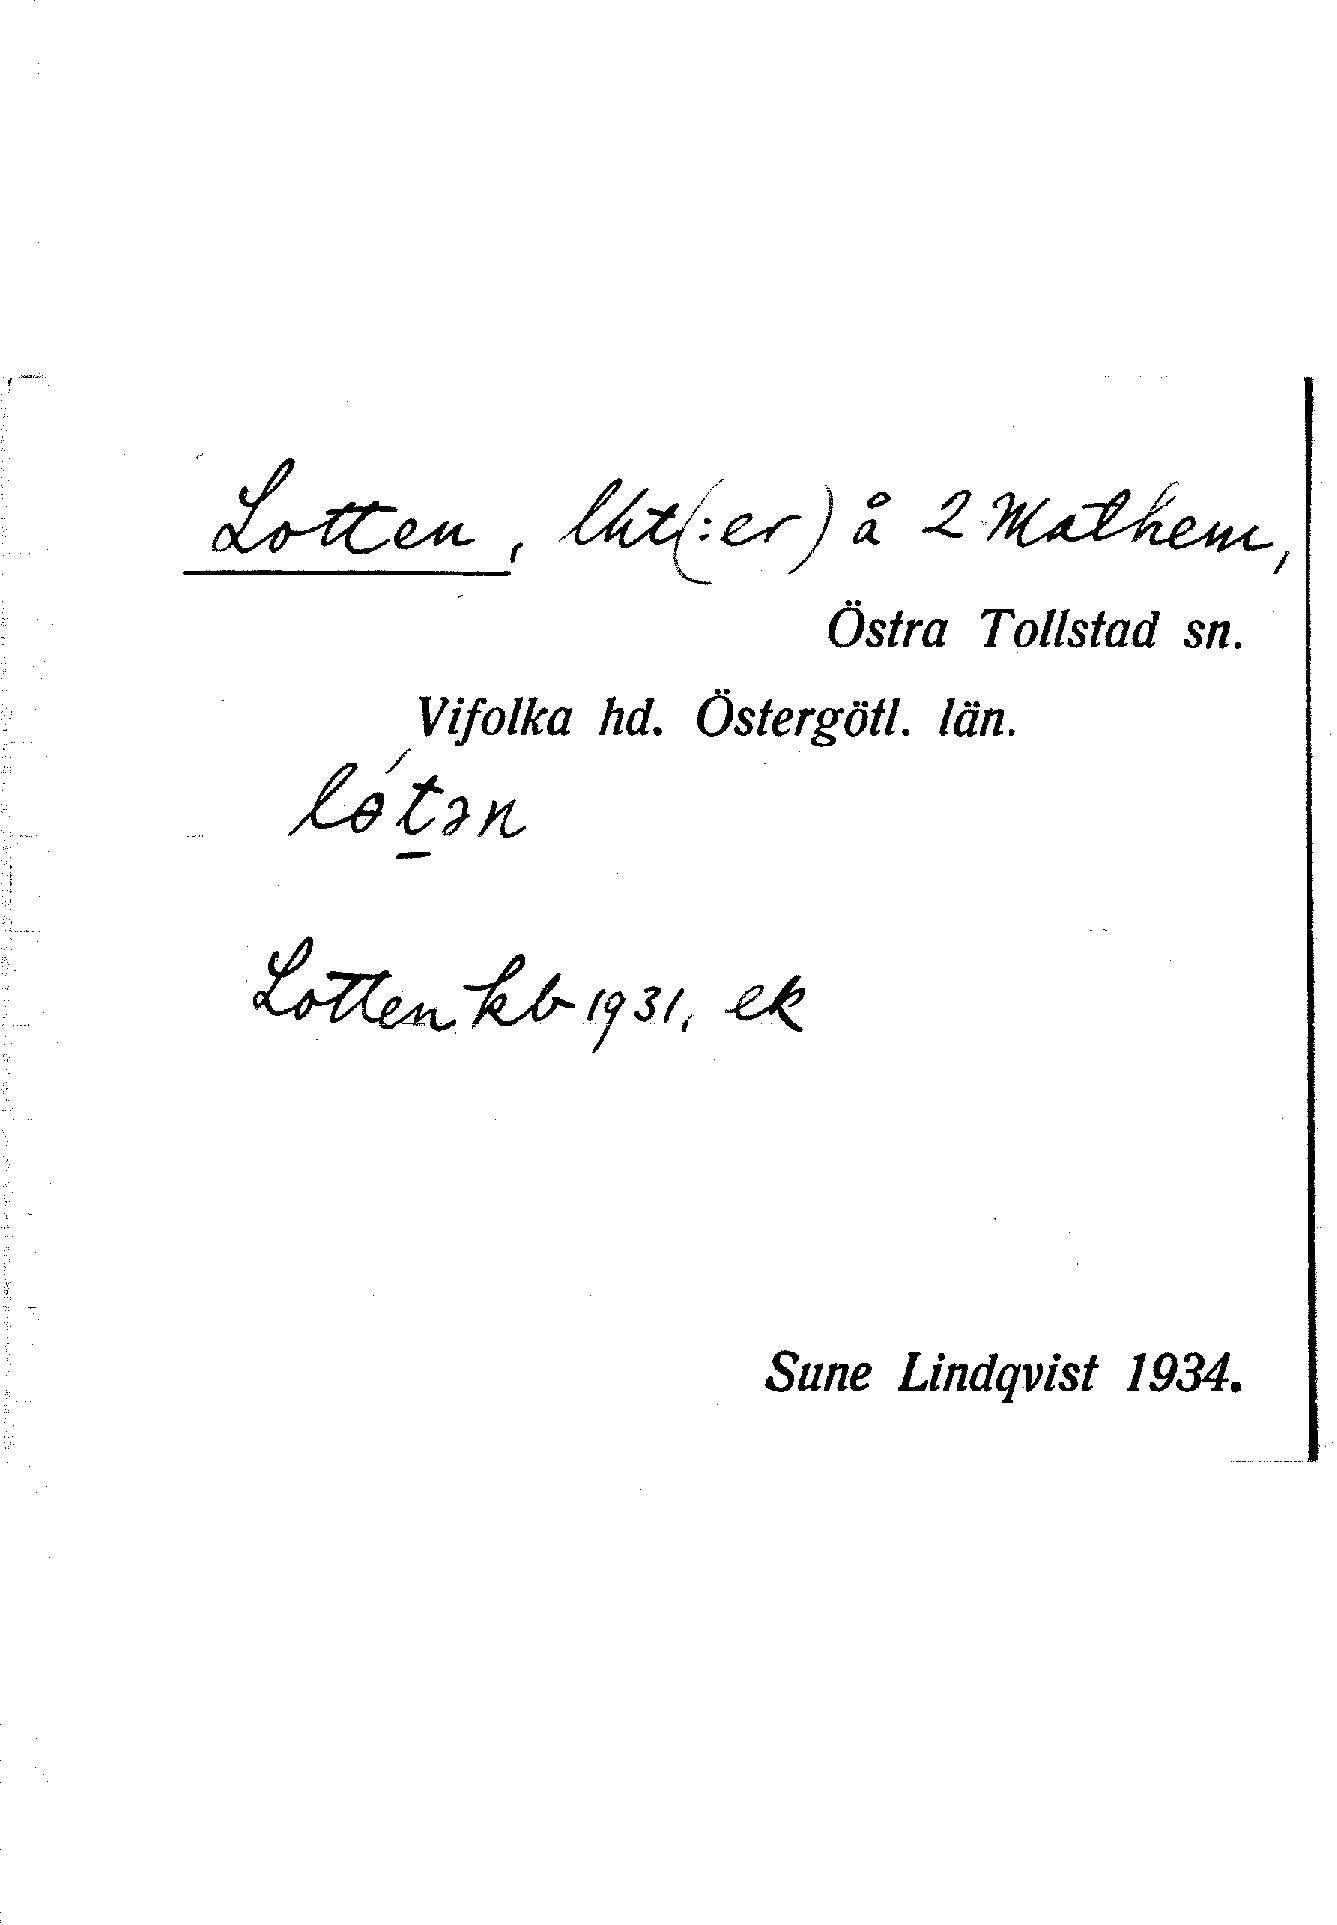 Lotten, lht(:er) å 2 Mathem,
Östra Tollstad sn.
Vifolka hd. Östergötl. län.
lɵ́t̠ən
Lotten kb 1931, ek
Sune Lindqvist 1934.